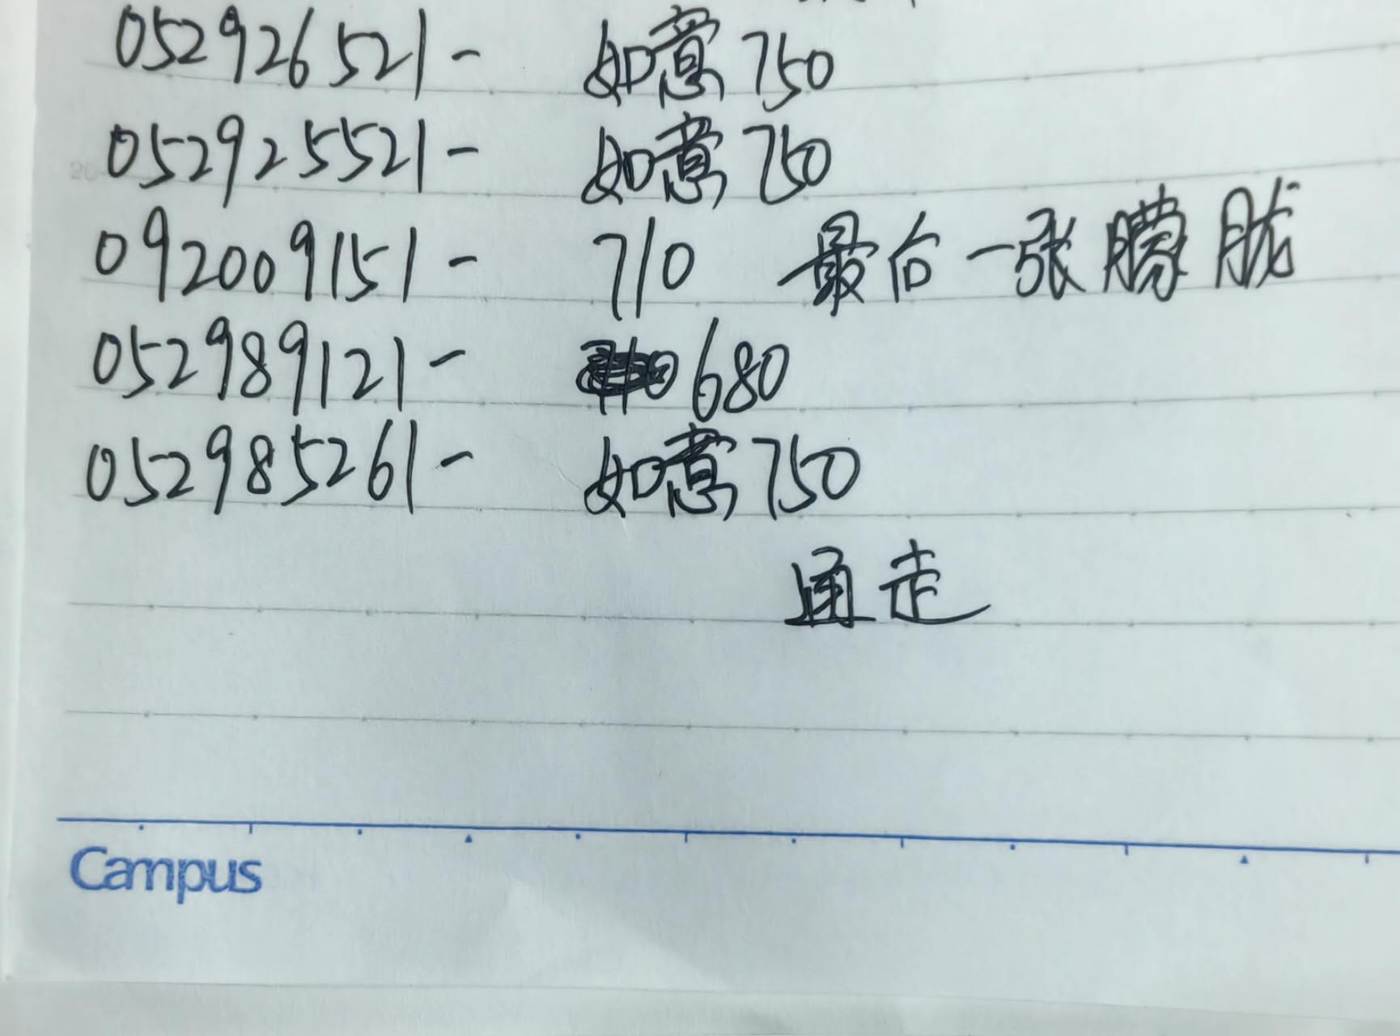 052926521- 如意750
052925521- 如意750
092009151- 710 最后一张朦胧
052989121- 680
052985261- 如意750
通走
Campus